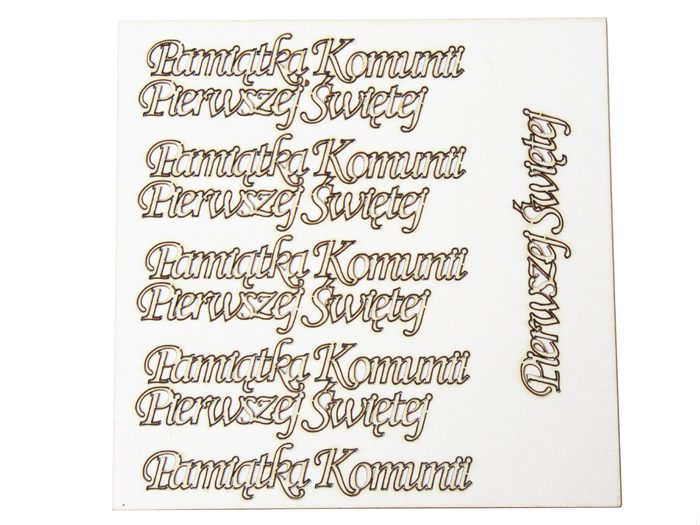 Pamiątka Komunii
Pierwszej Świętej
Pamiątka Komunii
Pierwszej Świętej
Pamiątka Komunii
Pierwszej Świętej
Pamiątka Komunii
Pierwszej Świętej
Pamiątka Komunii
Pierwszej Świętej